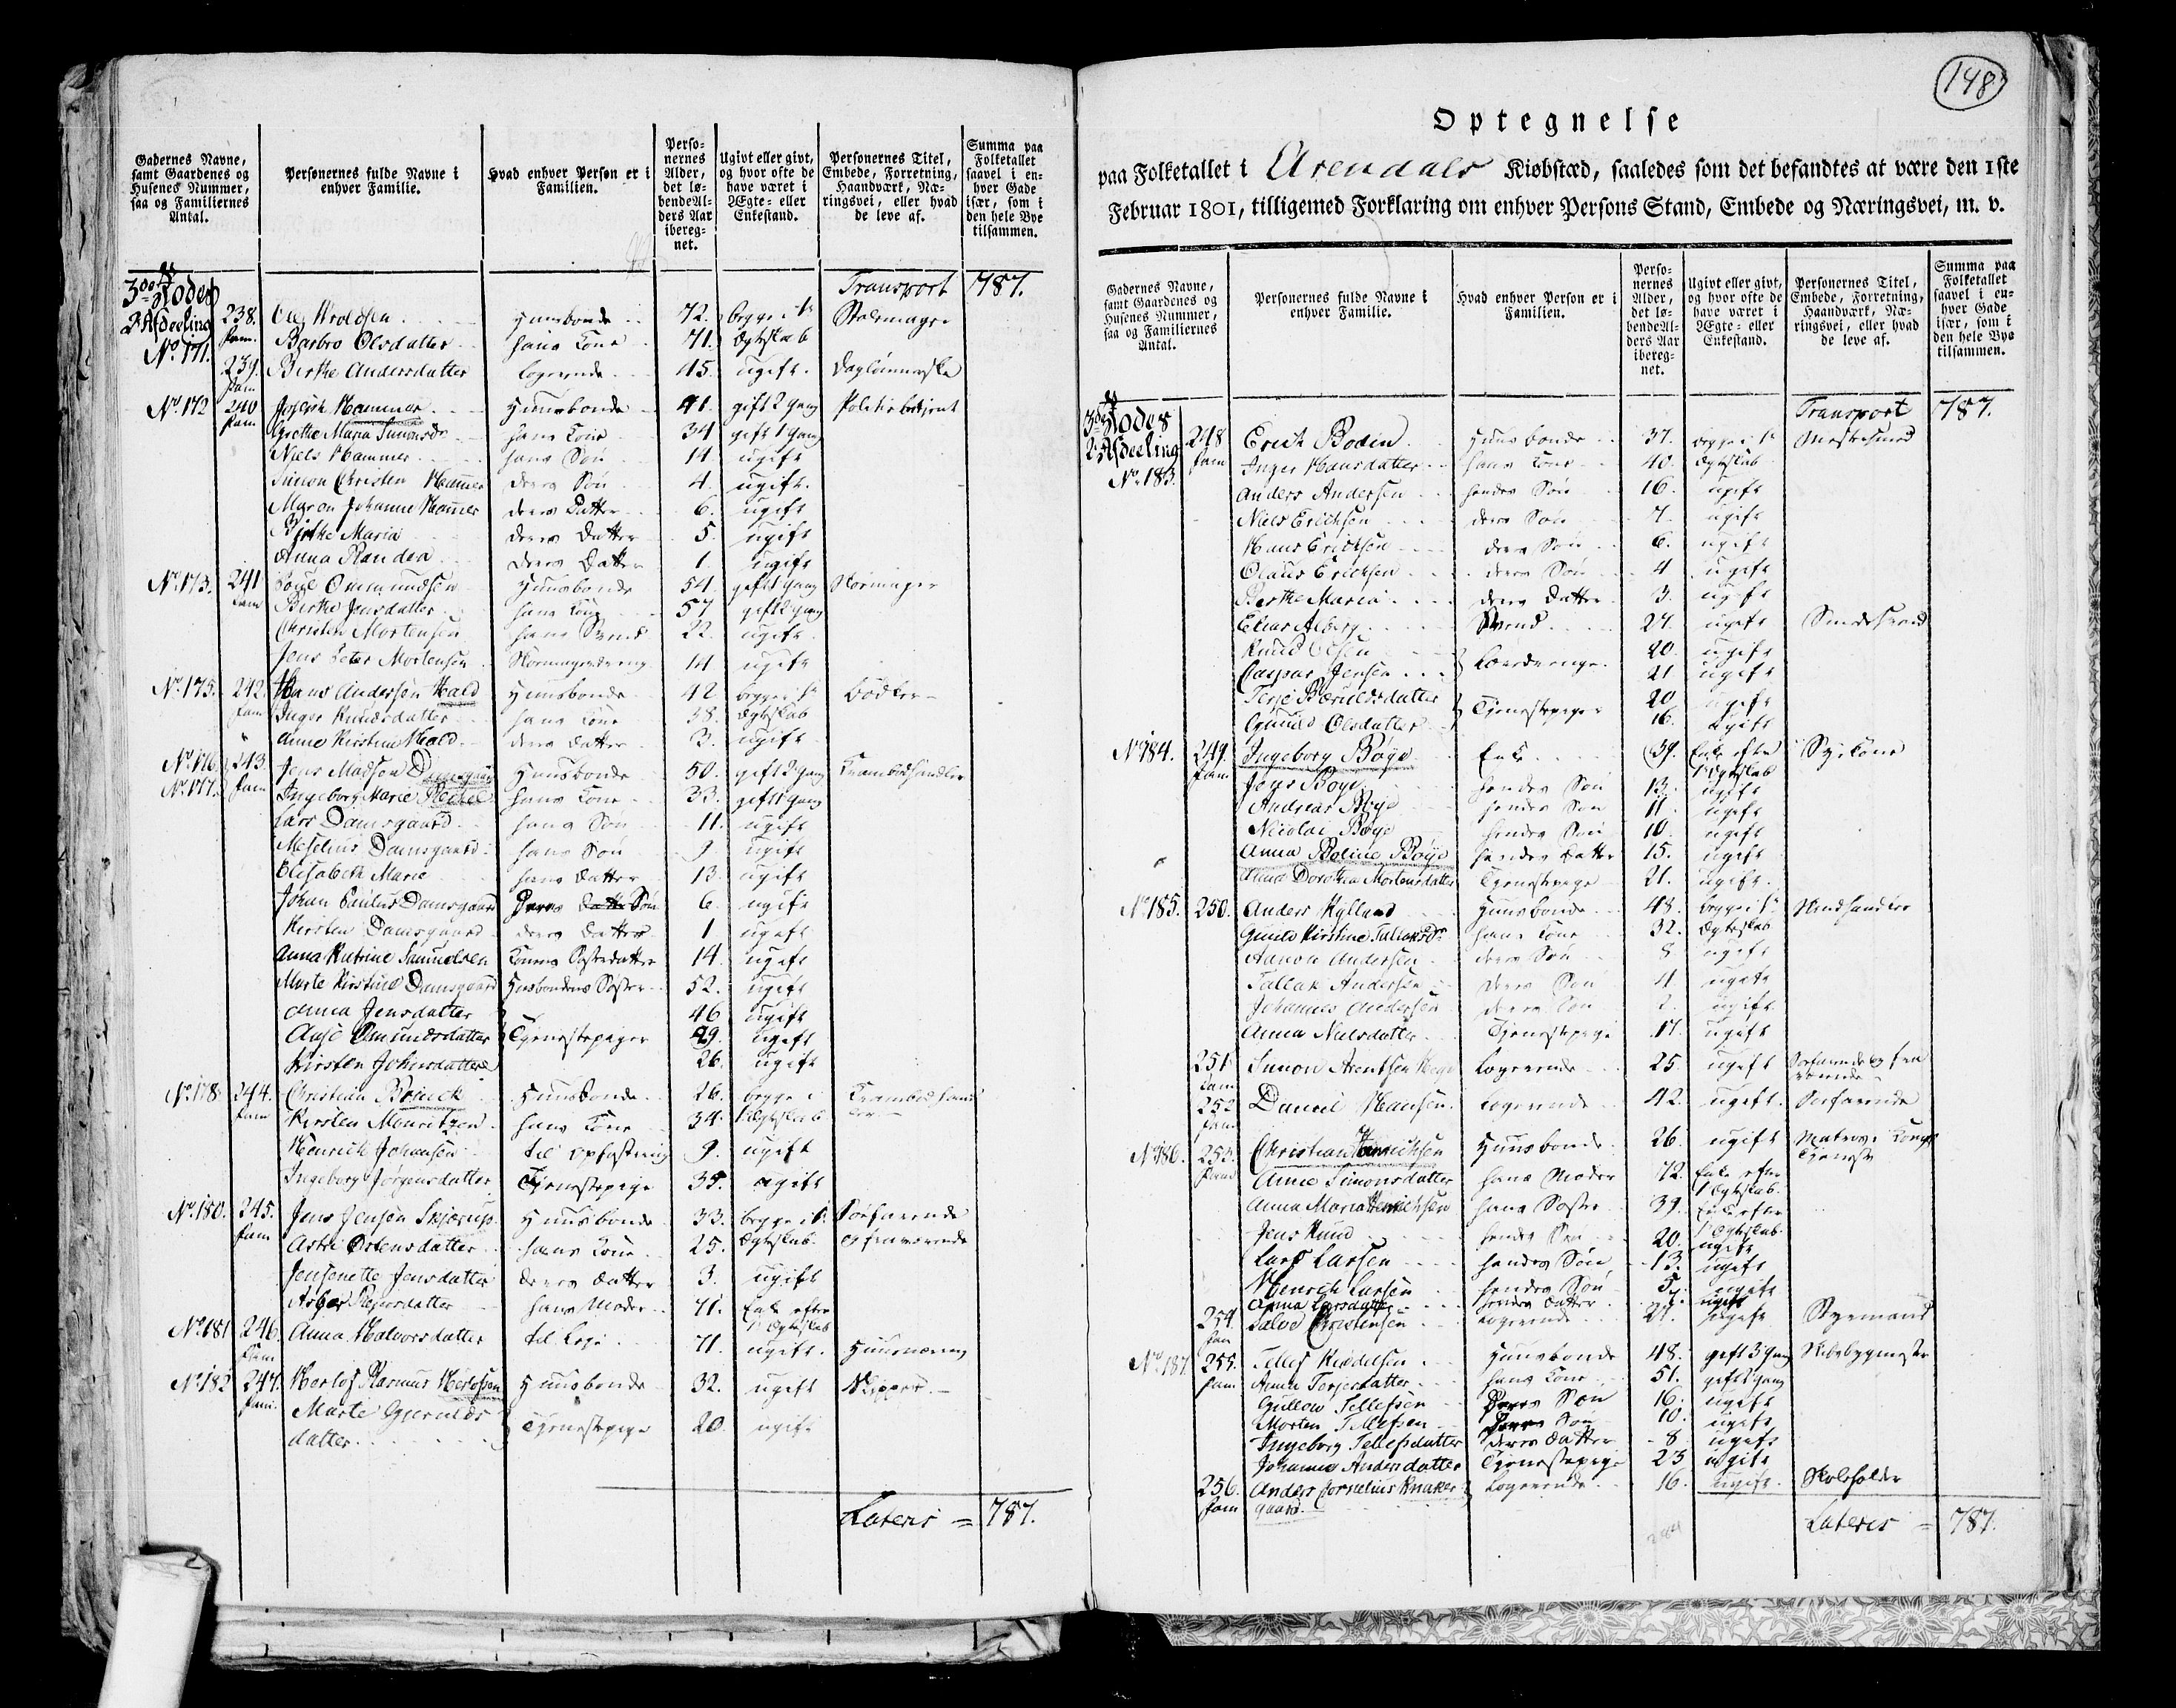 Gadernes Navne, samt Gaardenes og Husenes Nummer, saa og Familiernes Antal.
Personernes fulde Navne i enhver Familie.
Hvad enhver Person er i Familien.
Personernes Alder, det løbende Alders Aar iberegnet.
Ugivt eller givt, og hvor ofte de have været i Ægte- eller Enkestand.
Personernes Titel, Embede, Forretning, Haandværk, Næringsvei, eller hvad de leve af.
Summa paa Folketallet saavel i enhver Gade især, som i den hele Bye tilsammen.
3de Rodes Transport 787.
2 Afdeeling 238. Huusbonde 72. begge i 1te
No. 171. fam. Barbro Olsdatter hans Kone 71. Ægteskab
239. fam Birthe Andersdatter logerende 45. ugift.
No. 172 240 fam Joseph Hammer Huusbonde 41. gift 2 gang Politiebetjent
Grethe Maria Simonsdr hans Kone 34 gift 1 gang
Niels Hammer hans Søn 14 ugift
Simon Christen Hammer deres Søn 4. ugift.
Maren Johanne Hammer deres Datter 6. ugift
Birthe Maria deres Datter 5. ugift
Anna Randea deres Datter 1. ugift
No. 173. 241 fam Ommundsen Huusbonde 54. gift 1 gang Skomager
Birthe Jensdatter hans Kone 57 gift 2 gang
Christen Mortensen hans Svend 22. ugift.
Jens Peter Mortensen Skomagerdreng 14 ugift
No. 175. 242. fam Hans Andersen Hald Huusbonde 42 begge i 1te Bødker
Inger Knudsdatter hans Kone 38. Ægteskab
Anne Kirstine Hald deres Datter 3. ugift
No. 176. 243. Jens Madsen Damsgaard Huusbonde 50. gift 2 gang Kramboehandler
No. 177. fam Ingeborg Marie hans Kone 33. gift 1 gang
Lars Damsgaard hans Søn 11. ugift
Damsgaard hans Søn 9 ugift
Elisabeth Marie hans Datter 13. ugift
Johan Paulus Damsgaard Deres Søn 6. ugift
Kirsten Damsgaard deres Datter 1. ugift
Anna Katrine Samuelsen Konens Søsterdatter 14. ugift
Marte Kirstine Damsgaard Husbondens Søster 52. ugift
Anna Jensdatter 46 ugift
Omundsdatter Tjenestepiger 29. ugift
Kirsten Johnsdatter 26. ugift
No. 178. 244. fam Christian Huusbonde 26. begge i
Kirsten Mouritzen hans Kone 34. Ægteskab
Henrich Johansen til opfostring 9. ugift
Ingeborg Jørgensdatter Tjenestepige 35. ugift
No. 180. 245. fam Jens Jensen Skjerup Huusbonde 33. begge i 1te Søefarende
Astri Ostensdatter hans Kone 25. Ægteskab og fraværende
Jensenette Jensdatter deres Datter 3. ugift
hans Moder 71. Enke efter 1 Ægteskab
No. 181 246. fam Anna Halvorsdatter til Leje 71. ugift.
No. 182 247. fam. Herlof Rasmus Herlofsen Huusbonde 32. ugift Skipper
Marte Gjeruldsdatter Tjenestepige 20. ugift
Lateris = 787.
148
Optegnelse
paa Folketallet i Arendals Kiøbstæd, saaledes som det befandtes at være den 1ste
Februar 1801, tilligemed Forklaring om enhver Persons Stand, Embede og Næringsvei, m. v.
Gadernes Navne, samt Gaardenes og Husenes Nummer, saa og Familiernes Antal.
Personernes fulde Navne i enhver Familie.
Hvad enhver Person er i Familien.
Personernes Alder, det løbende Alders Aar iberegnet.
Ugivt eller givt, og hvor ofte de have været i Ægte- eller Enkestand.
Personernes Titel, Embede, Forretning, Haandværk, Næringsvei, eller hvad de leve af.
Summa paa Folketallet saavel i enhver Gade især, som i den hele Bye tilsammen.
3de Rodes Transport 787.
2 Afdeeling 248 fam Erich Bodin Huusbonde 37. begge i 1te
No. 183. Inger Hansdatter hans Kone 40. Ægteskab
Anders Andersen hendes Søn 16. ugift
Niels Erichsen deres Søn 7. ugift
Hans Erichsen deres Søn 6. ugift
Olaus Erichsen deres Søn 4 ugift
Birthe Maria deres Datter 3. ugift
Elias Aberg Svend 27. ugift
Knud Olsen 20. ugift
Caspar Jensen Læredrenge 21 ugift
Terje Bæruldsdatter Tjenestepiger 20 ugift
Gunild Olsdatter 16. ugift
No. 184. 249. fam Ingeborg Boye Enke 39. Enke efter 1te Ægteskab Syekone
Jens Boye hendes Søn 13. ugift
Andreas Boye hendes Søn 11. ugift
Nicolai Boye hendes Søn 10. ugift
Anna Boline Boye hendes Datter 15. ugift
Anna Dorothea Mortensdatter Tjenestepige 21. ugift.
No. 185. 250. Anders Hylland Huusbonde 48. begge i 1te
Gunild Kirstine hans Kone 32. Ægteskab
Aanon Andersen deres Søn 8 ugift
Tallak Andersen deres Søn 4 ugift
Johannes Andersen deres Søn 2. ugift
Anna Nielsdatter Tjenestepige 17. ugift
251 fam Simon Arentsen Logerende 25. ugift Søefarende og fraværende
252 fam Daniel Hansen. Logerende 42. ugift. Søefarende
No. 186. 253. fam Christian Henrichsen Huusbonde 26. ugift Matros i Kongs Tjeneste
Anne Simonsdatter hans Moder 72. Enke efter 1 Ægteskab.
Anna Maria Henrichsen hans Søster 39. Enke efter 1te Ægteskab.
Jens Knud hendes Søn 20. ugift
Lars Larsen hendes Søn 13. ugift
Henrich Larsen hendes Søn 5. ugift
Anna Larsdatter hendes Datter ugift
254. fam Salve Christensen Logerende 27. ugift Styrmand
No. 187 255. fam Tellef Kiddelsen Huusbonde 48. gift 3 gang Skibsbygmester
Anna Terjesdatter hans Kone 51. gift 2 gang
Gullow Tellefsen Deres Søn 16. ugift
Morten Tellefsen Deres Søn 10. ugift
Ingeborg Tellefsdatter deres Datter 8 ugift
Johanna Andersdatter Tjenestepige 23 ugift
256. fam Anders Cornelius Knakergaard Logerende 16. ugift. Skoleholder
Lateris = 787.